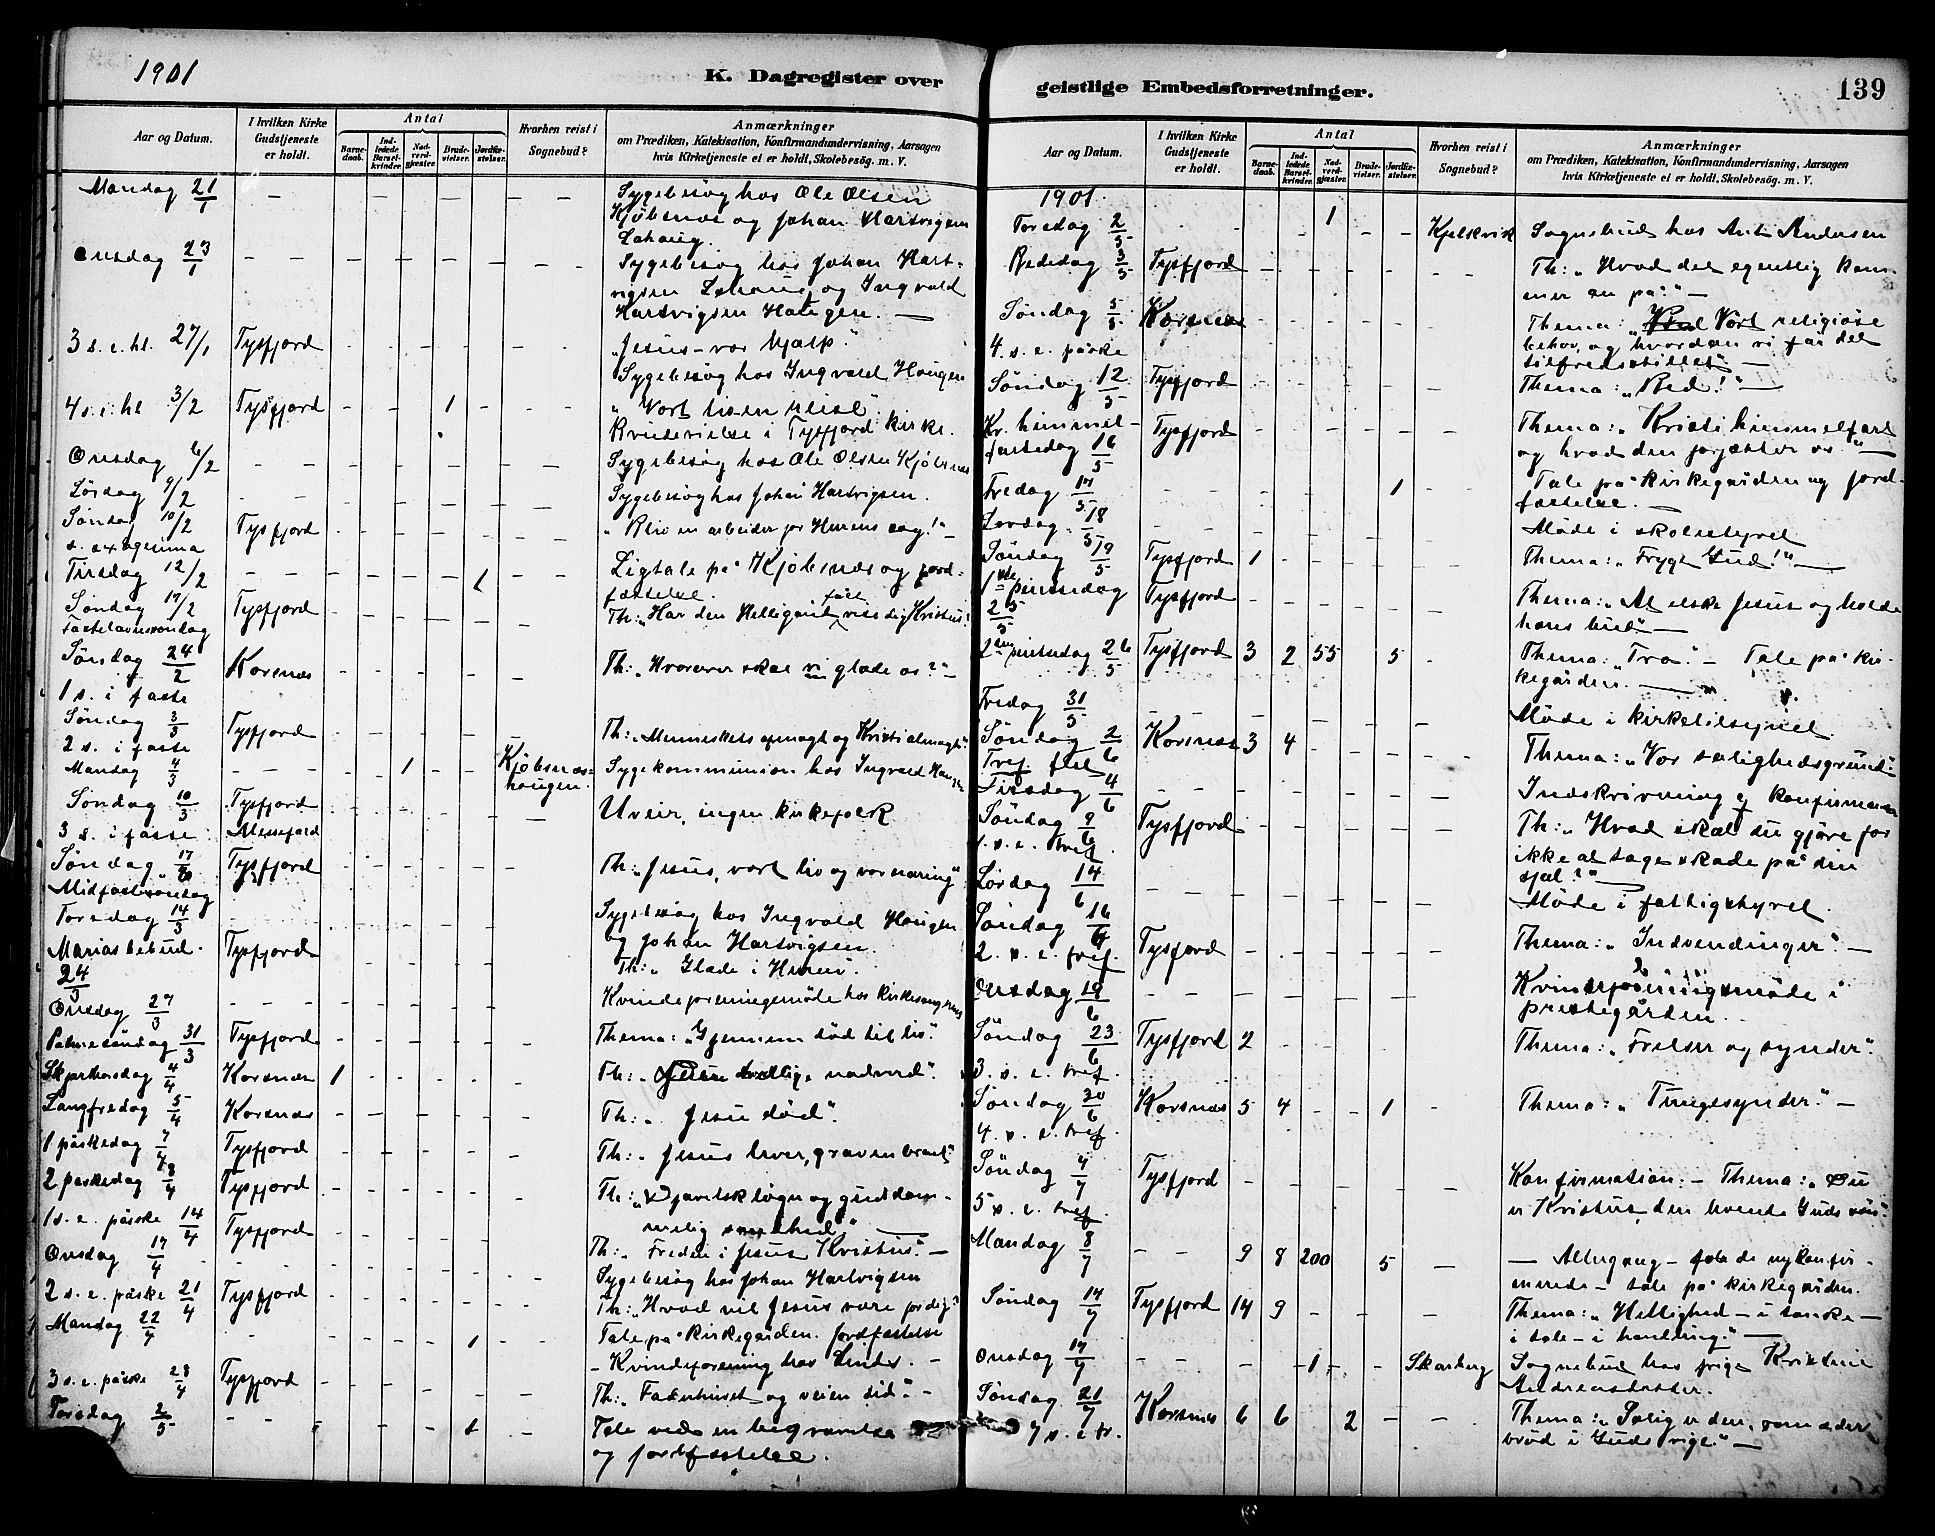 1901
K. Dagregister over
Aar og Datum. | I hvilken Kirke Gudstjeneste er holdt. | Antal | Barnedaab. | Indledede Barselkvinder. | Nadverdgjæster. | Brudevielser. | Jordfæstelser. | Hvorhen reist i Sognebud? | Anmærkninger om Prædiken, Katekisation, Konfirmandundervisning, Aarsagen hvis Kirketjeneste ei er holdt, Skolebesøg. m. V.
Mandag 21/1 — Sygebesøg hos Ole Olsen
Kjøbsnæs og Johan Hartvigsen
Onsdag 23/1 — Sygebesøg hos Johan Hart-
vigsen og Ingvald
Hartvigsen Haugen. —
3 s. e. hl. 27/1 Tysfjord „Jesus – vor hjælp".
Sygebesøg hos Ingvald Haugen
4 s. e. hl 3/2 Tysfjord 1 „Vort livs en reise".
Brudevielse i Tysfjord kirke.
Onsdag 6/2 — Sygebesøg hos Ole Olsen Kjøbsnæs
Lørdag 9/2 — Sygebesøg hos Johan Hartvigsen.
Søndag 10/2 Tysfjord „Bliv en arbeider for Herrens sag!" –
s. sexagesima
Tirsdag 12/2 — 1 Ligtale på Kjøbsnæs og jord-
fæstelse.
Søndag 17/2 Tysfjord Th: „Har den Helligånd fået vise dig Kristus?
Fastelavnssøndag
Søndag 24/2 Korsnæs Th: „Hvorover skal vi glæde os?" –
1 s. i faste
Søndag 3/3 Tysfjord Th: „Menneskets afmagt og Kristi almagt".
2 s. i faste
Mandag 4/3 — 1 Kjøbsnæs-haugen. Sygekommunion hos Ingvald Haugen
Søndag 10/3 Tysfjord Uveir, ingen kirkefolk
3 s. i faste Messefald
Søndag 17/3 Tysfjord Th: „Jesus, vort liv og vor næring"
Midfastesøndag
Torsdag 14/3 — Sygebesøg hos Ingvald Haugen
og Johan Hartvigsen.
Marias bebud. 24/3 Tysfjord Th: „Glæde i Herren".
Onsdag 27/3 — Kvindeforeningsmøde hos kirkesangeren
Palmesøndag 31/3 Tysfjord Thema: „Gjennem død til liv".
Skjærtorsdag 4/4 Korsnæs 1 Th: „ hellige nadverd".
Langfredag 5/4 Korsnæs Th: „Jesu død".
1 påskedag 7/4 Tysfjord Th: „Jesus lever, graven brast".
2 påskedag 8/4 Tysfjord Th: „Djævelsk løgn og guddom-
melig sandhed". —
1 s. e. påske 14/4 Tysfjord Th: „Freden i Jesus Kristus". –
Onsdag 17/4 — Sygebesøg hos Johan Hartvigsen
2 s. e. påske 21/4 Tysfjord Th: „Hvad vil Jesus være for dig?
Mandag 22/4 — 1 Tale på kirkegården. Jordfæstelse
– Kvindeforening hos –
3 s. e. påske 28/4 Tysfjord Th: „Faderhuset og veien did". –
Torsdag 2/5 — 1 Tale ved en begravelse
og jordfæstelse.
geistlige Embedsforretninger.
139
Aar og Datum. | I hvilken Kirke Gudstjeneste er holdt. | Antal | Barnedaab. | Indledede Barselkvinder. | Nadverdgjæster. | Brudevielser. | Jordfæstelser. | Hvorhen reist i Sognebud? | Anmærkninger om Prædiken, Katekisation, Konfirmandundervisning, Aarsagen hvis Kirketjeneste ei er holdt, Skolebesøg. m. V.
1901.
Torsdag 2/5 — 1 Kjelkvik Sognebud hos Andersen
Bededag 3/5 Tysfjord Th: „Hvad det egentlig kom-
mer an på". –
Søndag 5/5 Korsnæs Thema: „Vort religiøse
behov, og hvordan vi får det
4. s. e. påske tilfredsstillet". –
Søndag 12/5 Tysfjord Thema: „Bed!" —
Kr. himmel-
fartsdag 16/5 Tysfjord Thema: „Kristi himmelfart
og hvad den forjætter os". —
Fredag 17/5 — 1 Tale på kirkegården og jord-
fæstelse. —
Lørdag 18/5 — Møde i skolestyret
Søndag 19/5 Tysfjord 1 Thema: „Frygt Gud!" —
1ste pinsedag 25/5 Tysfjord Thema: „At elske Jesus og holde
hans bud" —
2den pinsedag 26/5 Tysfjord 3 2 55 5 Thema: „Tro". – Tale på kir-
kegården. —
Fredag 31/5 — Møde i kirketilsynet
Søndag 2/6 Korsnæs 3 4 Thema: „Vor salighedsgrund".
Tref. fest
Tirsdag 4/6 — Indskrivning af konfirmanter
Søndag 9/6 Tysfjord Th: „Hvad skal du gjøre for
1. s. e. tref. ikke at tage skade på din
sjæl?" —
Lørdag 14/6 — Møde i fattigstyret.
Søndag 16/6 Tysfjord Thema: „Indvendinger". —
2. s. e. tref.
Onsdag 19/6 — Kvindeforeningsmøde i
prestegården.
Søndag 23/6 Tysfjord 2 Thema: „Frelser og synder".
3. s. e. tref.
Søndag 30/6 Korsnæs 5 4 1 Thema: „Tungesynder". –
4. s. e. tref.
Søndag 7/7 Tysfjord Konfirmation: – Thema: „Du
5 s. e. tref. er Kristus, den levende Guds søn".
Mandag 8/7 — 9 8 200 5 — Altergang – de nykonfir-
merede – tale på kirkegården.
Søndag 14/7 Tysfjord 14 9 Thema: „Hellighed – i tanke –
i tale – i handling". —
Onsdag 17/7 — 1 Skarberg Sognebud hos pige Kristine
Andreasdatter.
Søndag 21/7 Korsnæs 6 6 2 Thema: „Salig er den, som æder
7 s. e. tr. brød i Guds rige". —